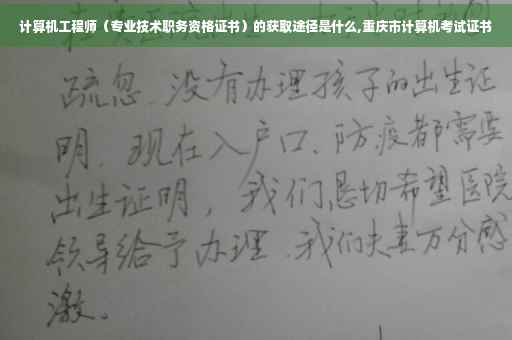 计算机工程师（专业技术职务资格证书）的获取途径是什么,重庆市计算机考试证书
疏忽、没有办理孩子的出生证
明．现在入户口、防疫都需要
出生证明，我们恳切希望医院
领导给予办理．我们夫妻万分感
激。